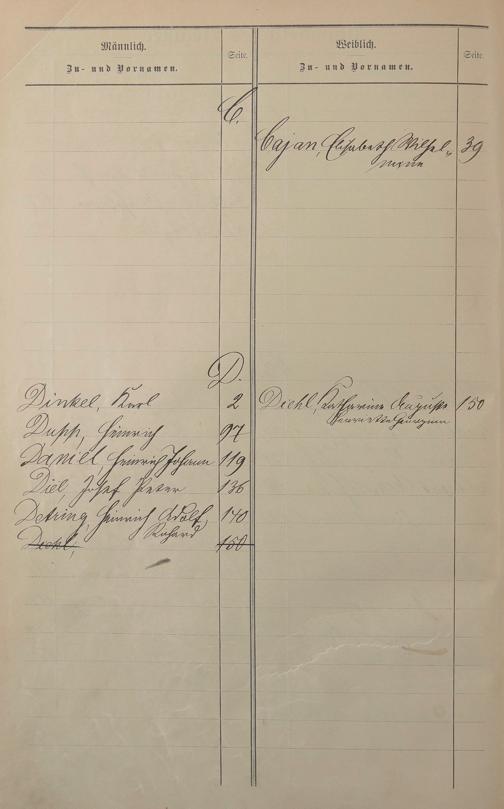 Männlich.
Zu- und Vornamen.
Seite.
Weiblich.
Zu- und Vornamen.
Seite.
C.
Cajan, Elisabeth Wilhel-
mine 39
D.
Dinkel, Karl 2
Dupp, Heinrich 97
Daniel, Heinrich Johann 119
Diel, Josef Peter 136
Detring, Heinrich Adolf, 140
Richard
Diehl, 150
Diehl, Katharina Auguste 150